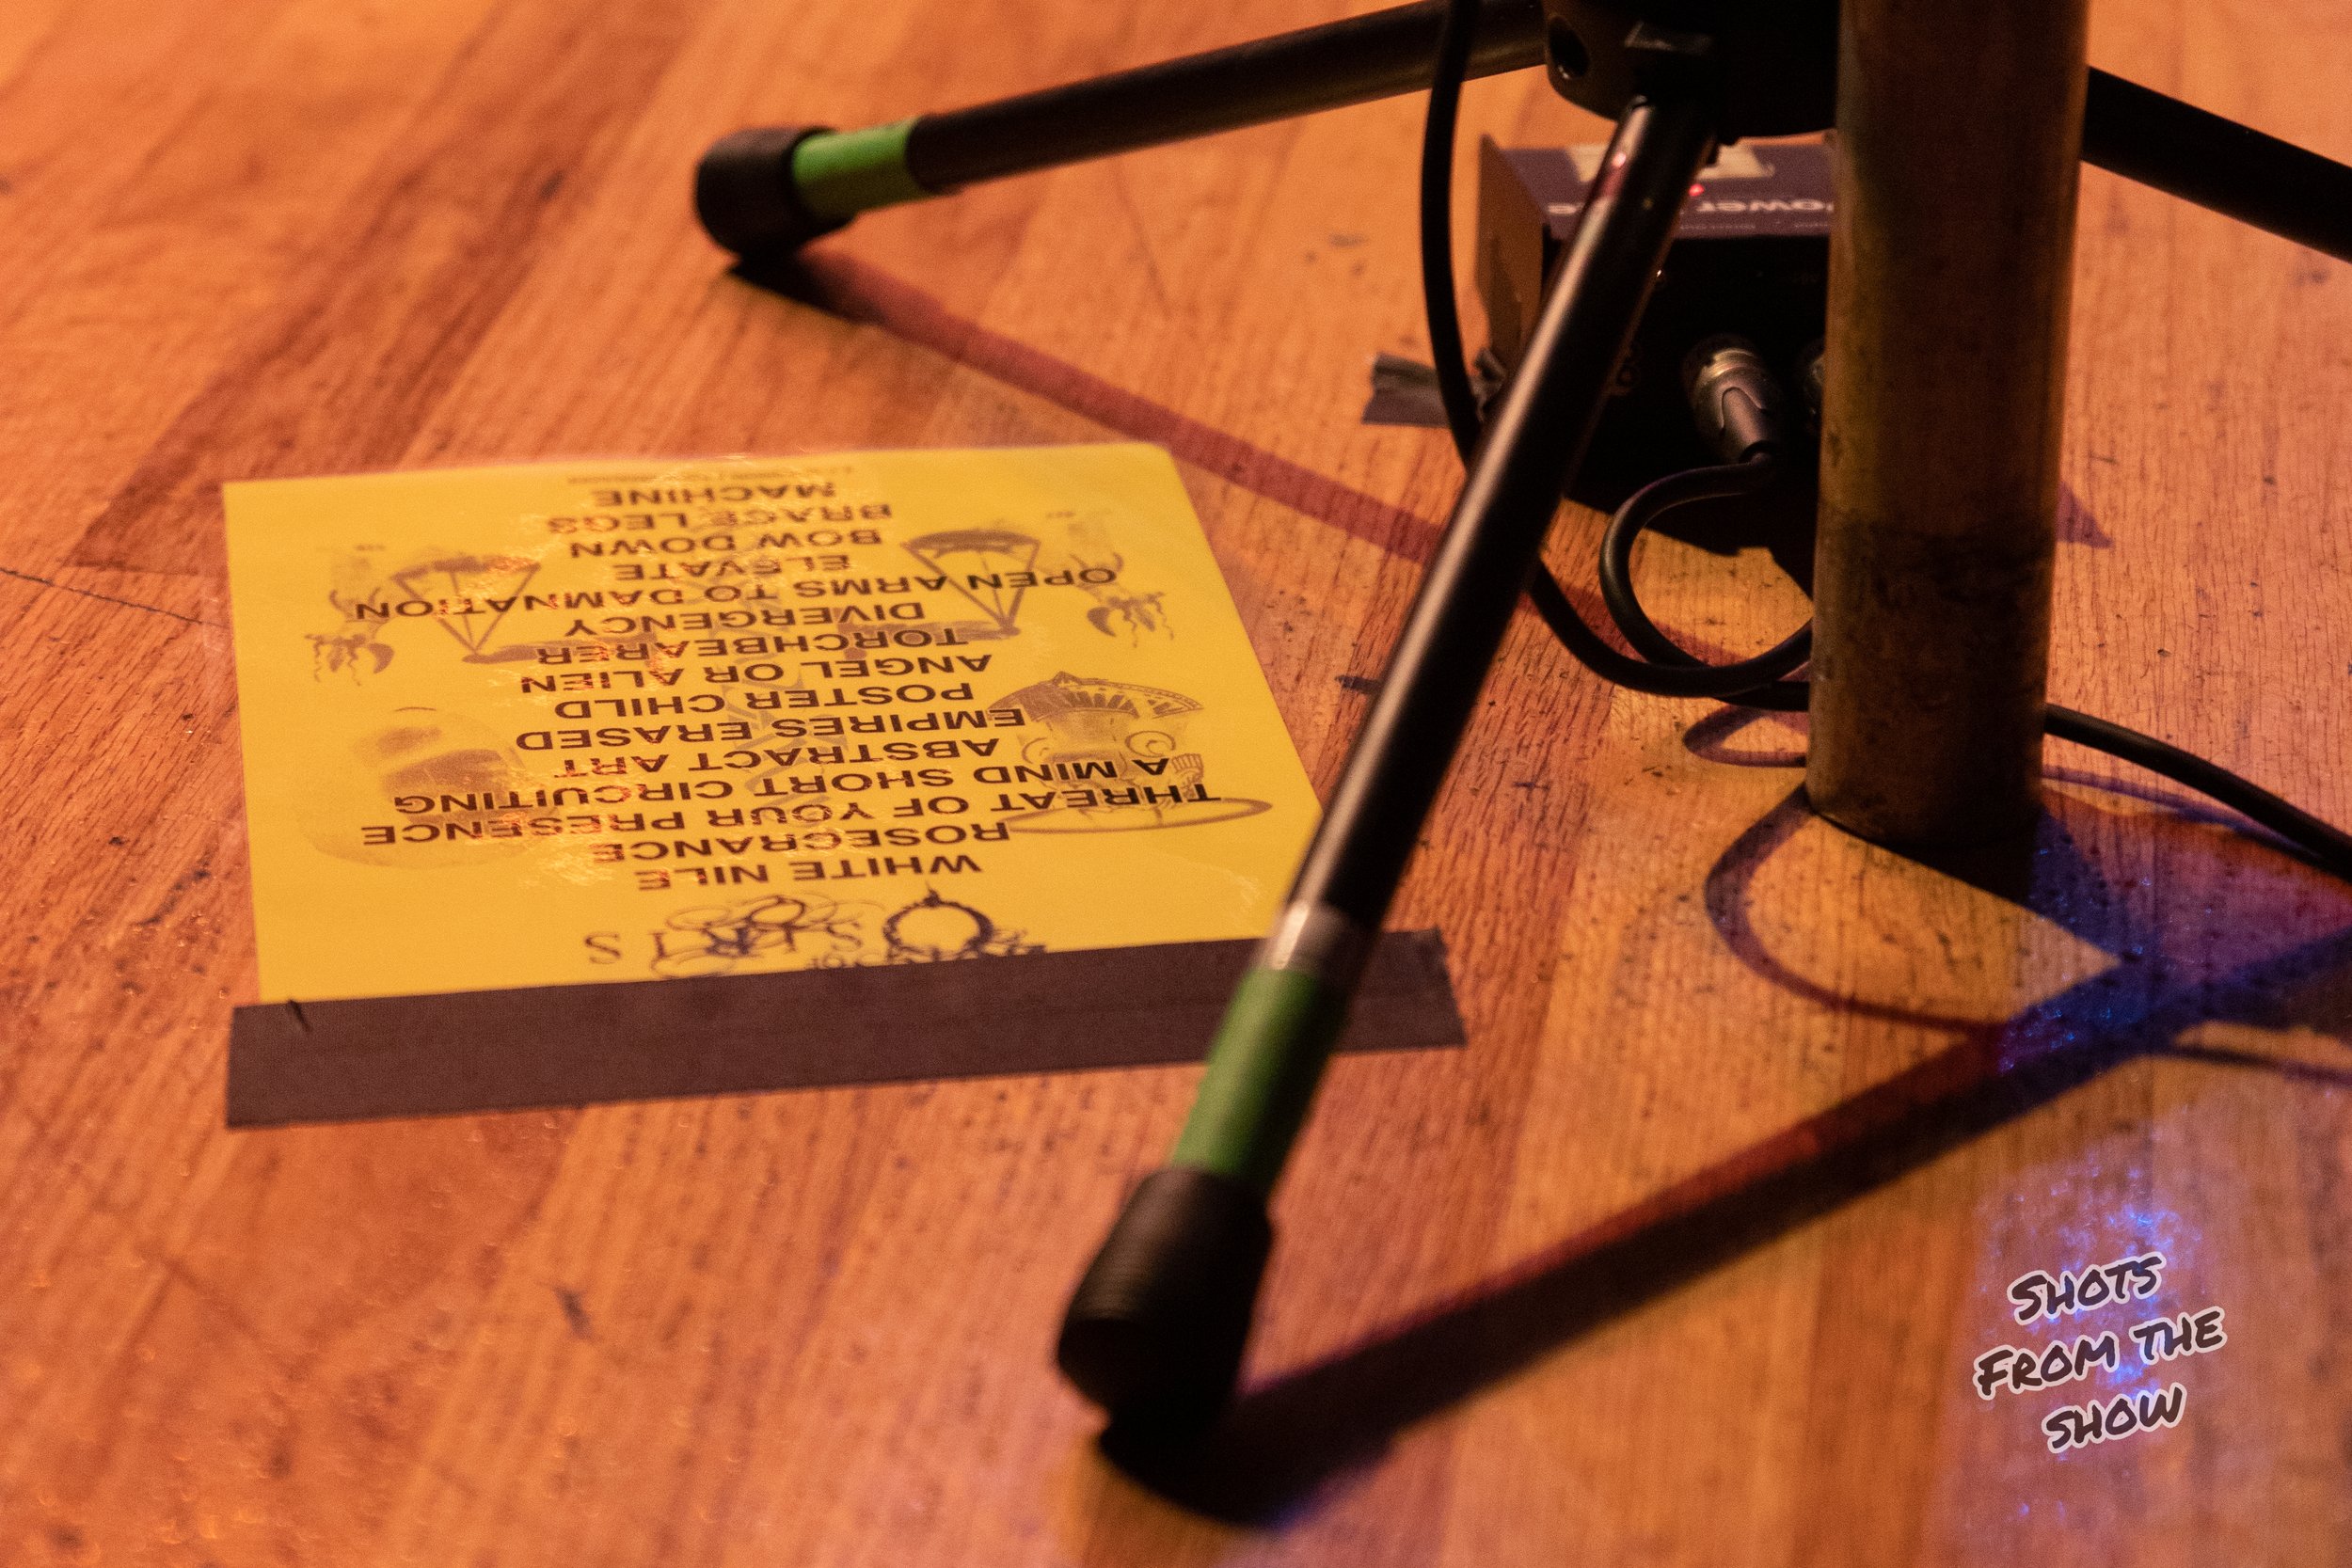 OSIRIS
WHITE NILE
ROSECRANCE
THREAT OF YOUR PRESENCE
A MIND SHORT CIRCUITING
ABSTRACT ART
EMPIRES ERASED
POSTER CHILD
ANGEL OR ALIEN
TORCHBEARER
DIVERGENCY
OPEN ARMS TO DAMNATION
ELEVATE
BOW DOWN
BRACE LEGS
MACHINE
SHOTS
FROM THE
SHOW